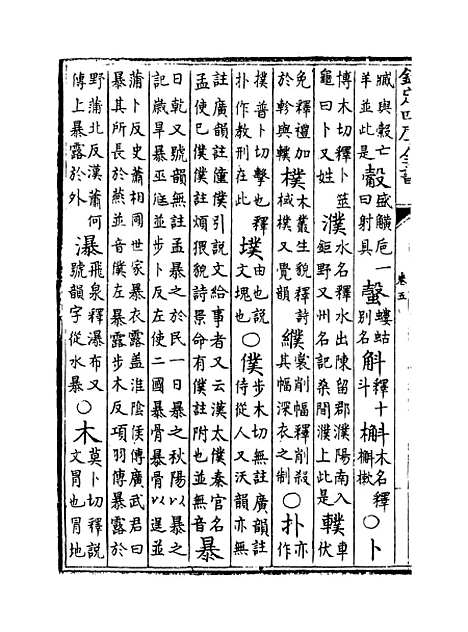 欽定四庫全書
卷五
臧與糓亡羊並此是 觳盛觵巵一曰射具 螜螻蛄别名 斛釋十斗 槲木名釋槲樕 ○卜
博木切釋卜筮龜曰卜又姓 濮水名釋水出陳留郡濮陽南入鉅野又州名記桑間濮上此是 轐車伏
免釋禮加於軫與轐 樸木叢生貌釋詩棫樸又覺韻 纀裳削幅釋削殺其幅深衣之制 ○扑亦作
撲普卜切擊也釋扑作教刑在此 墣由也説文塊也 ○僕步木切無註廣韻註侍從人又沃韻亦無
註廣韻註僮僕引説文給事者又云漢太僕秦官名孟使已僕僕註煩猥貌詩景命有僕註附也並無音 暴
日乾又號韻無註孟暴之於民一日暴之秋陽以暴之記歲旱暴巫尫並步卜反左使二國暴骨暴骨以逞並
蒲卜反史蕭相國世家暴衣露蓋淮陰侯傳廣武君曰暴其所長於燕並音僕左暴露步木反項羽傳暴露於
野蒲北反漢蕭何傳上暴露於外 瀑飛泉釋瀑布又號韻字從水暴 ○木莫卜切釋説文冐也冐地